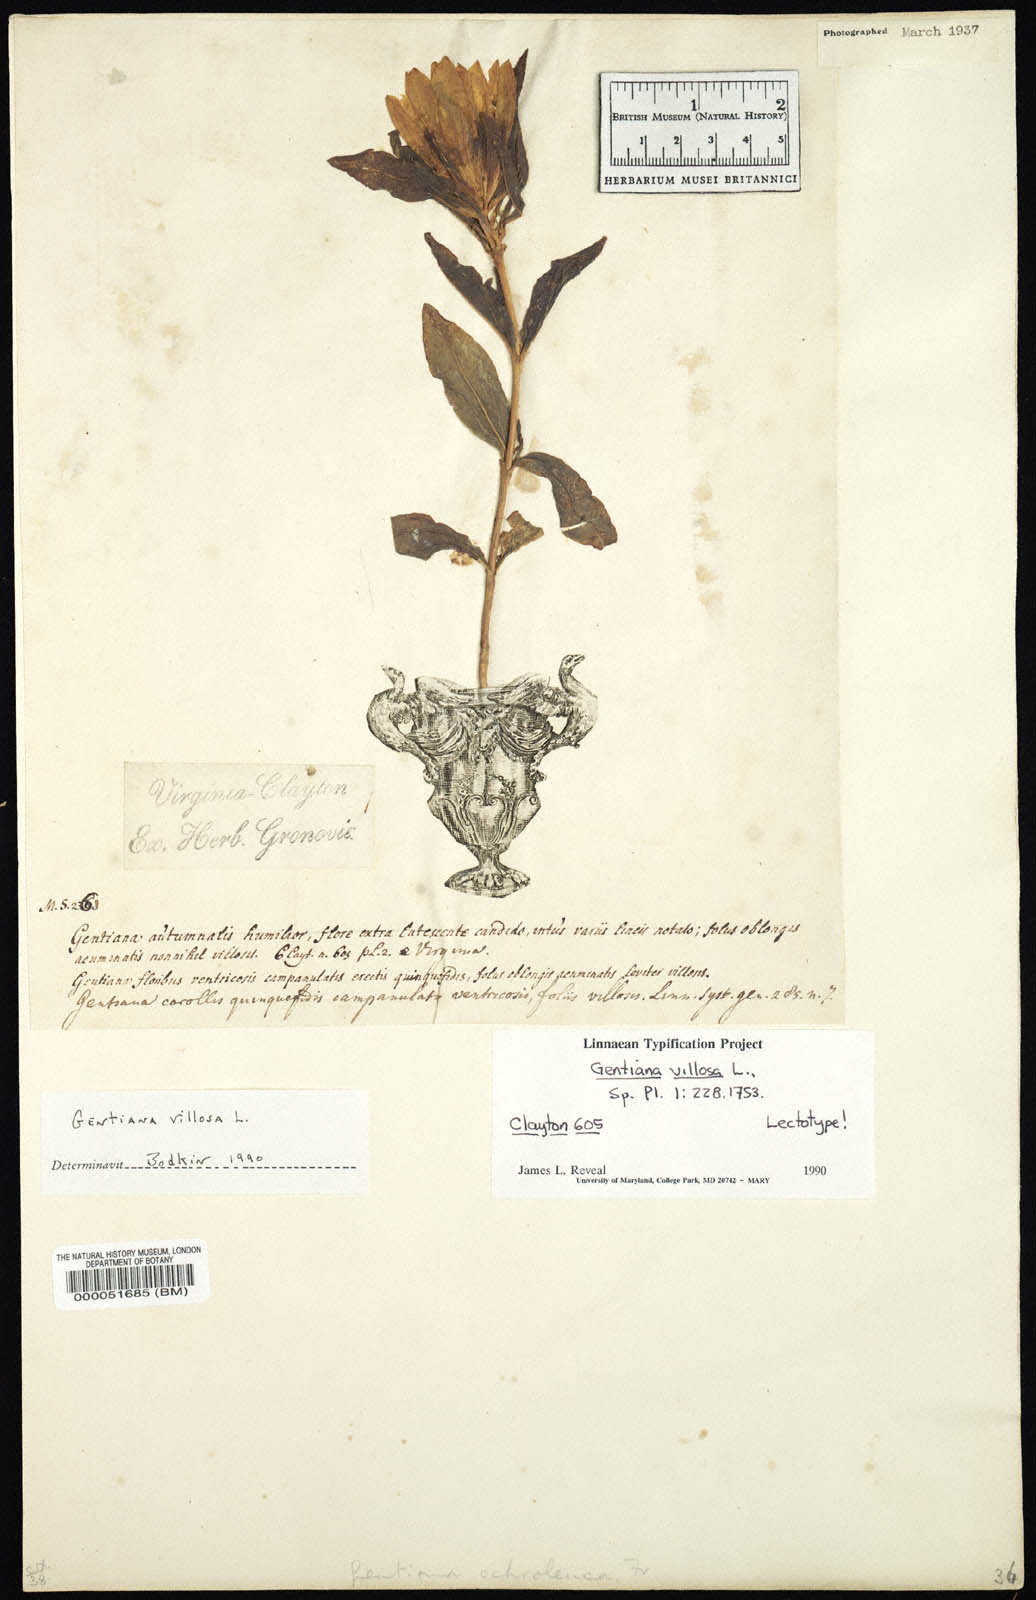 Photographed March 1937
1 2
BRITISH MUSEUM (NATURAL HISTORY)
1 2 3 4 5
HERBARIUM MUSEI BRITANNICI
Virginia-Clayton
Ex. Herb. Gronovii
M.S.
Gentiana autumnalis humilior, flore extra lutescente candido, intus variis lineis notato; foliis oblongis
acuminatis nonnihil villosis. Clayt. n. 605 pl. 2. e Virginia.
Gentiana floribus ventricosis campanulatis erectis quinquefidis, foliis oblongis acuminatis leviter villosis.
Gentiana corollis quinquefidis campanulatis ventricosis, foliis villosis. Linn. Syst. gen. 285. n. 7.
Linnaean Typification Project
Gentiana villosa L.,
Sp. Pl. 1: 228. 1753.
Clayton 605 Lectotype!
James L. Reveal 1990
University of Maryland, College Park, MD 20742 – MARY
GENTIANA VILLOSA L.
Determinavit Bodkin 1990
THE NATURAL HISTORY MUSEUM, LONDON
DEPARTMENT OF BOTANY
000051685 (BM)
38
Gentiana ochroleuca Fr